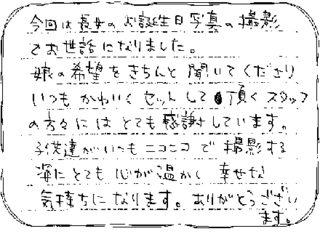 今回は長女のお誕生日写真の撮影
でお世話になりました。
娘の希望をきちんと聞いてくださり
いつもかわいくセットして頂くスタッフ
の方々にはとても感謝しています。
子供達がいつもニコニコで撮影する
姿にとても心が温かく幸せな
気持ちになります。ありがとうござい
ます。